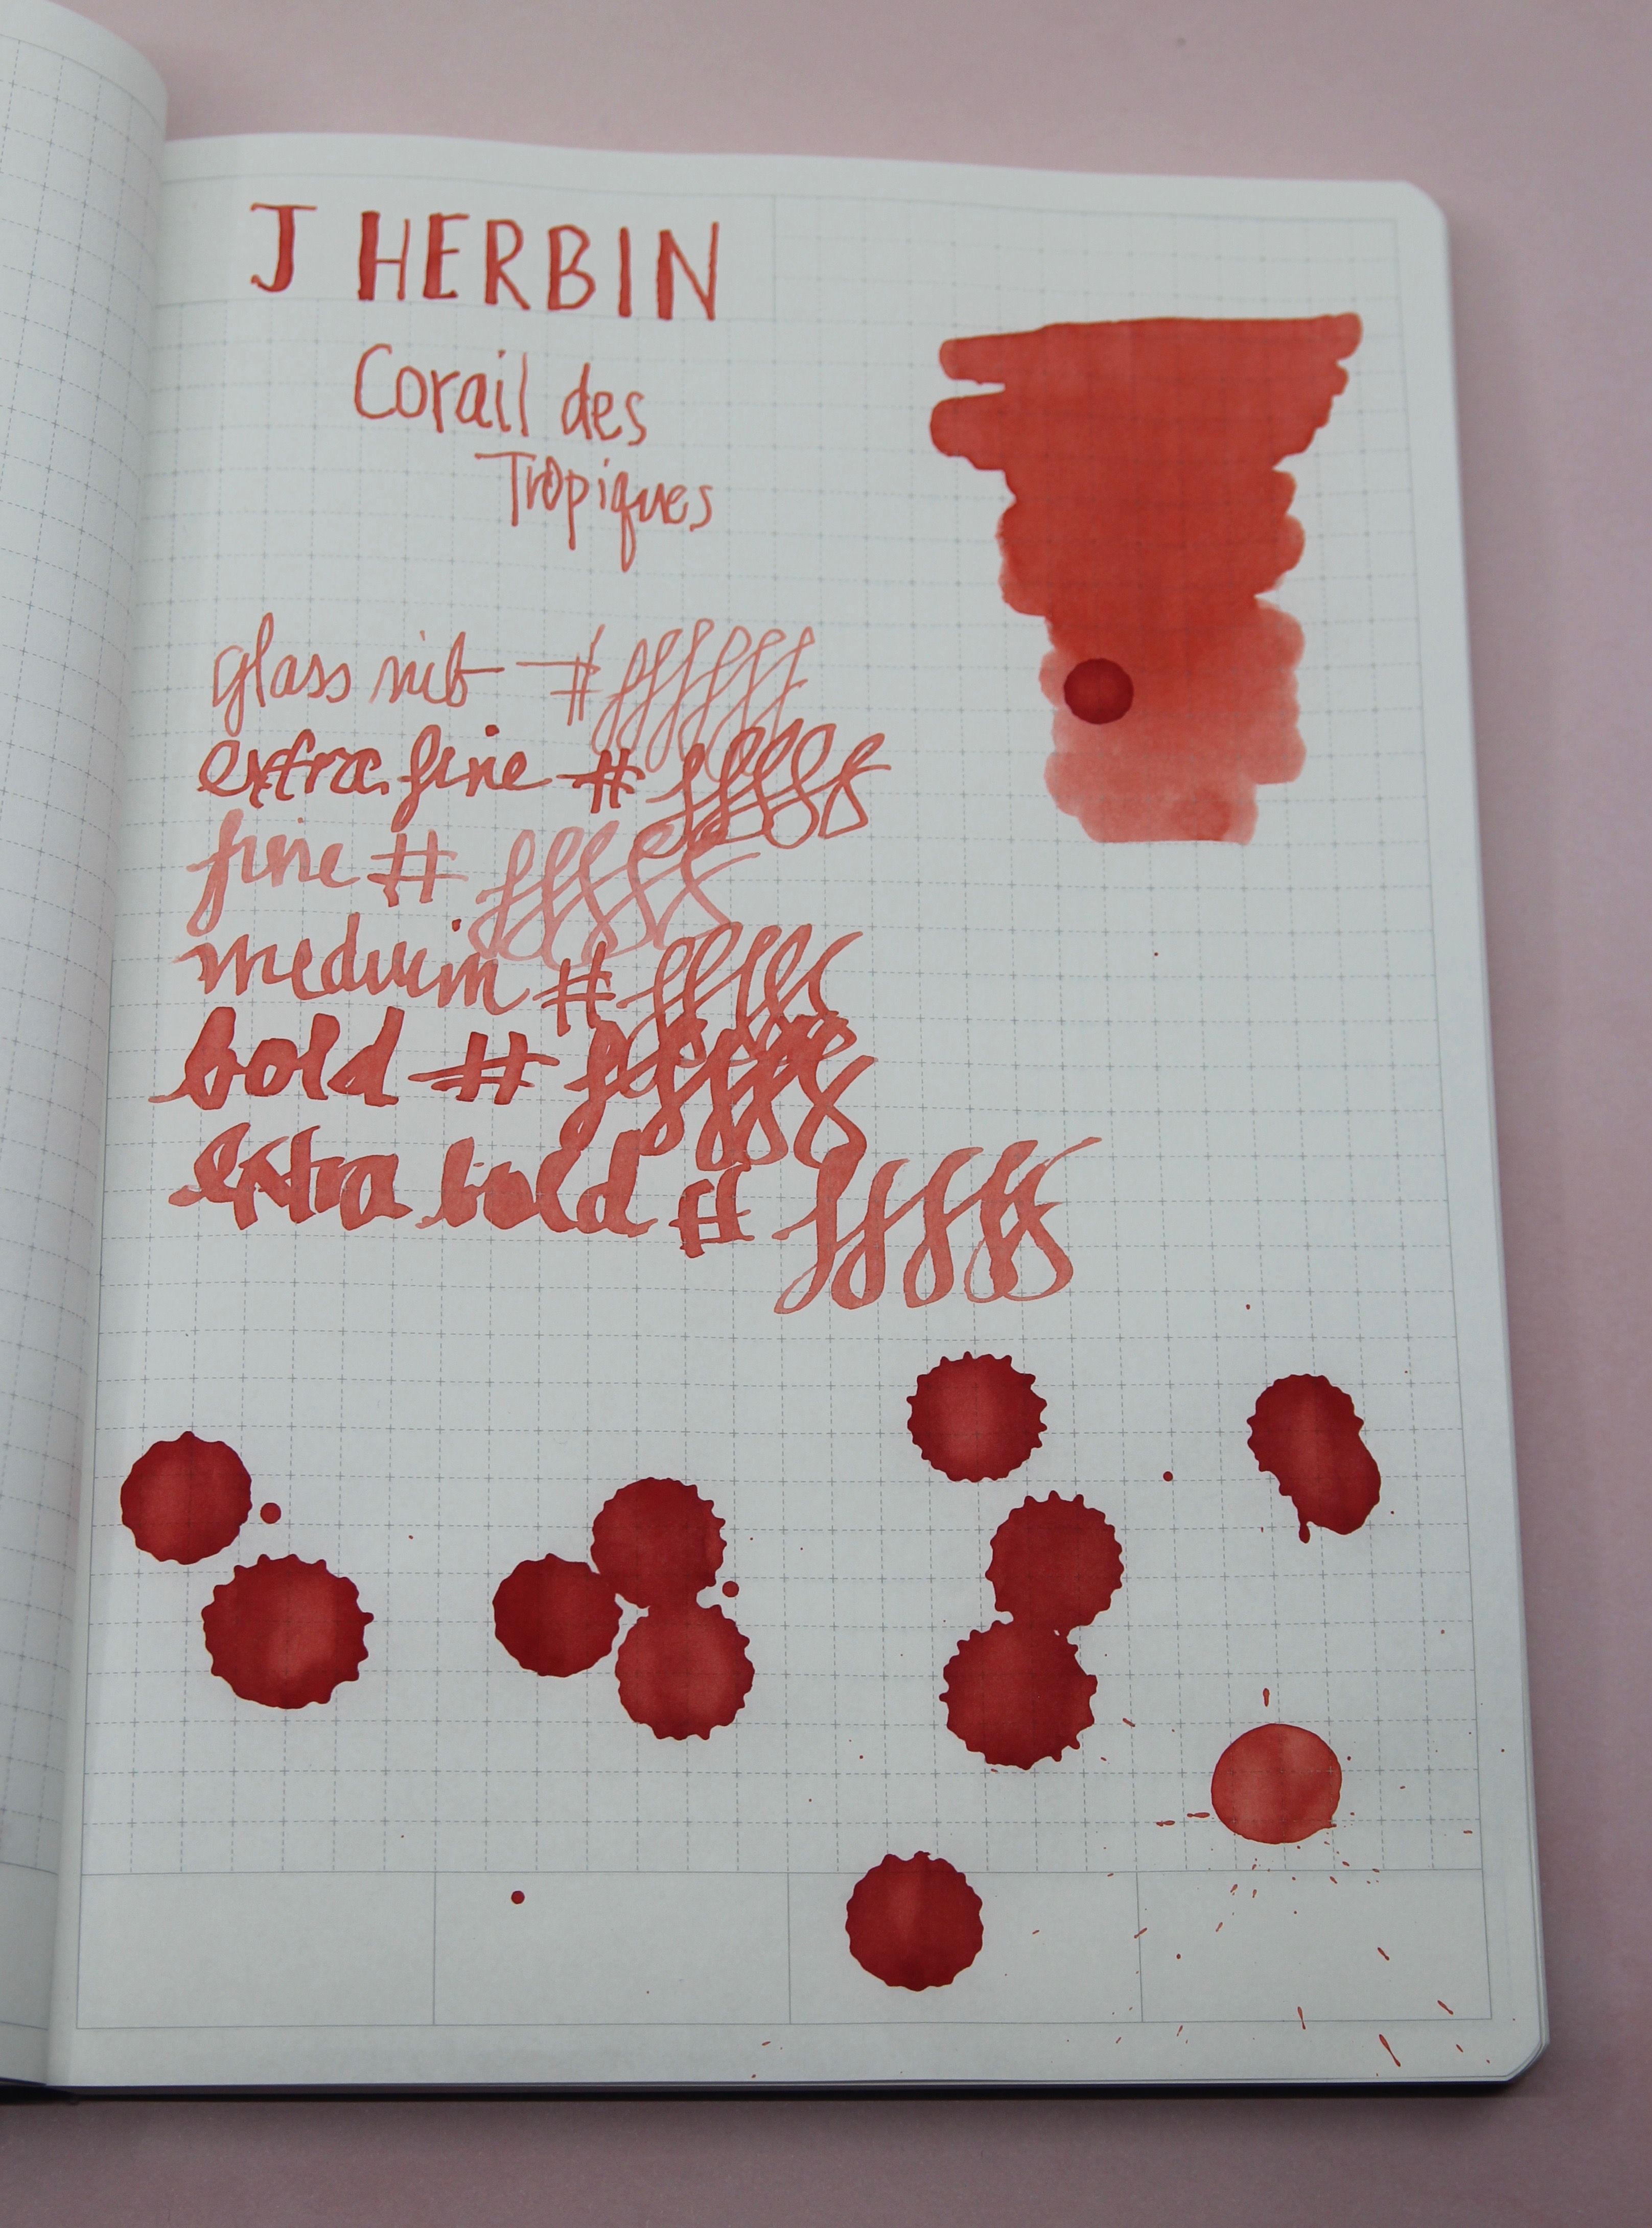 J HERBIN
Corail des
Tropiques
glass nib #
extra fine #
fine #
medium #
bold #
extra bold #